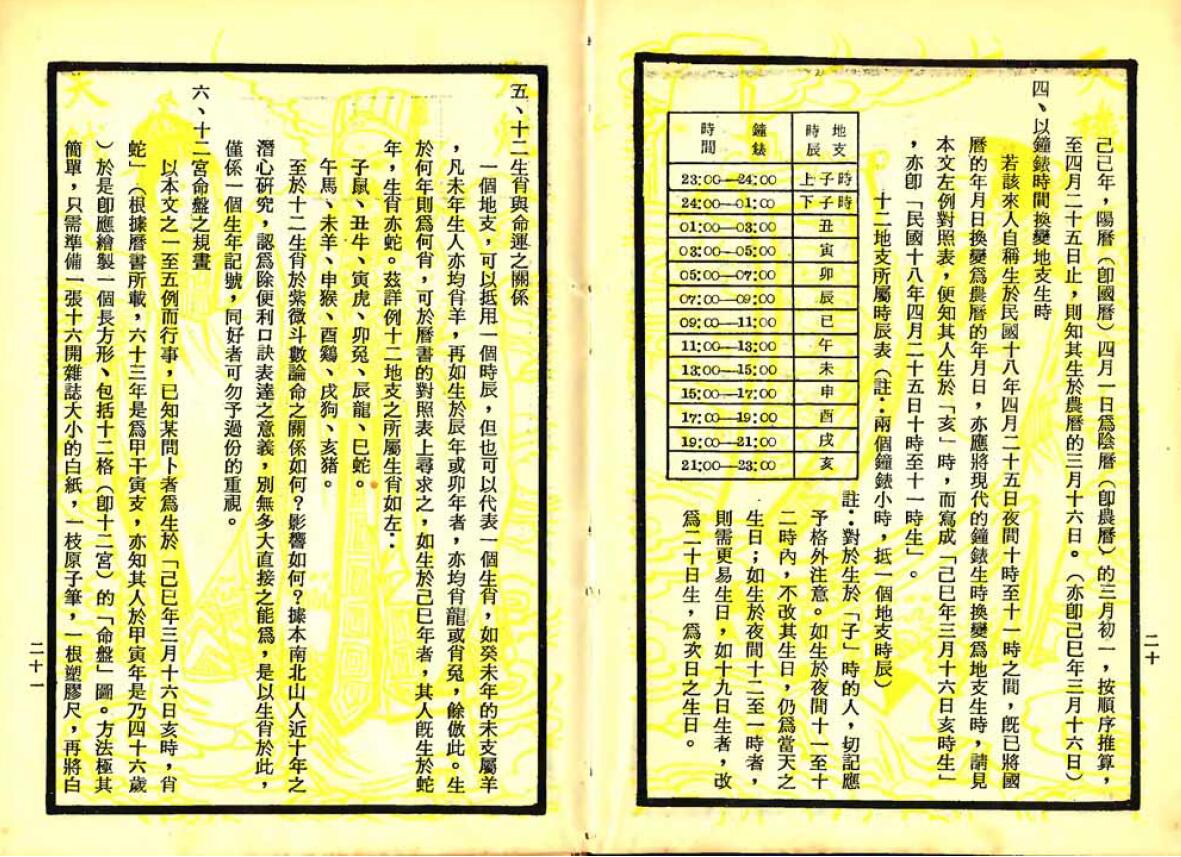 己巳年，陽曆（卽國曆）四月一日爲陰曆（卽農曆）的三月初一，按順序推算，
至四月二十五日止，則知其生於農曆的三月十六日。（亦卽己巳年三月十六日）
四、以鐘錶時間換變地支生時
若該來人自稱生於民國十八年四月二十五日夜間十時至十一時之間，旣已將國
曆的年月日換變爲農曆的年月日，亦應將現代的鐘錶生時換變爲地支生時，請見
本文左例對照表，便知其人生於「亥」時，而寫成「己巳年三月十六日亥時生」
，亦卽「民國十八年四月二十五日十時至十一時生」。
十二地支所屬時辰表（註：兩個鐘錶小時，抵一個地支時辰）
地支時辰 鐘錶時間
上子時 23:00—24:00
下子時 24:00—01:00
丑 01:00—03:00
寅 03:00—05:00
卯 05:00—07:00
辰 07:00—09:00
巳 09:00—11:00
午 11:00—13:00
未 13:00—15:00
申 15:00—17:00
酉 17:00—19:00
戌 19:00—21:00
亥 21:00—23:00
註：對於生於「子」時的人，切記應
予格外注意。如生於夜間十一至十
二時內，不改其生日，仍爲當天之
生日；如生於夜間十二至一時者，
則需更易生日，如十九日生者，改
爲二十日生，爲次日之生日。
二十
五、十二生肖與命運之關係
一個地支，可以抵用一個時辰，但也可以代表一個生肖，如癸未年的未支屬羊
，凡未年生人亦均肖羊，再如生於辰年或卯年者，亦均肖龍或肖兔，餘倣此。生
於何年則爲何肖，可於曆書的對照表上尋求之，如生於己巳年者，其人旣生於蛇
年，生肖亦蛇。茲詳例十二地支之所屬生肖如左：
子鼠、丑牛、寅虎、卯兔、辰龍、巳蛇。
午馬、未羊、申猴、酉鷄、戌狗、亥猪。
至於十二生肖於紫微斗數論命之關係如何？影響如何？據本南北山人近十年之
潛心硏究，認爲除便利口訣表達之意義，別無多大直接之能爲，是以生肖於此，
僅係一個生年記號，同好者可勿予過份的重視。
六、十二宮命盤之規畫
以本文之一至五例而行事，已知某問卜者爲生於「己巳年三月十六日亥時，肖
蛇」（根據曆書所載，六十三年是爲甲干寅支，亦知其人於甲寅年是乃四十六歲
）於是卽應繪製一個長方形、包括十二格（卽十二宮）的「命盤」圖。方法極其
簡單，只需準備一張十六開雜誌大小的白紙，一枝原子筆，一根塑膠尺，再將白
二十一